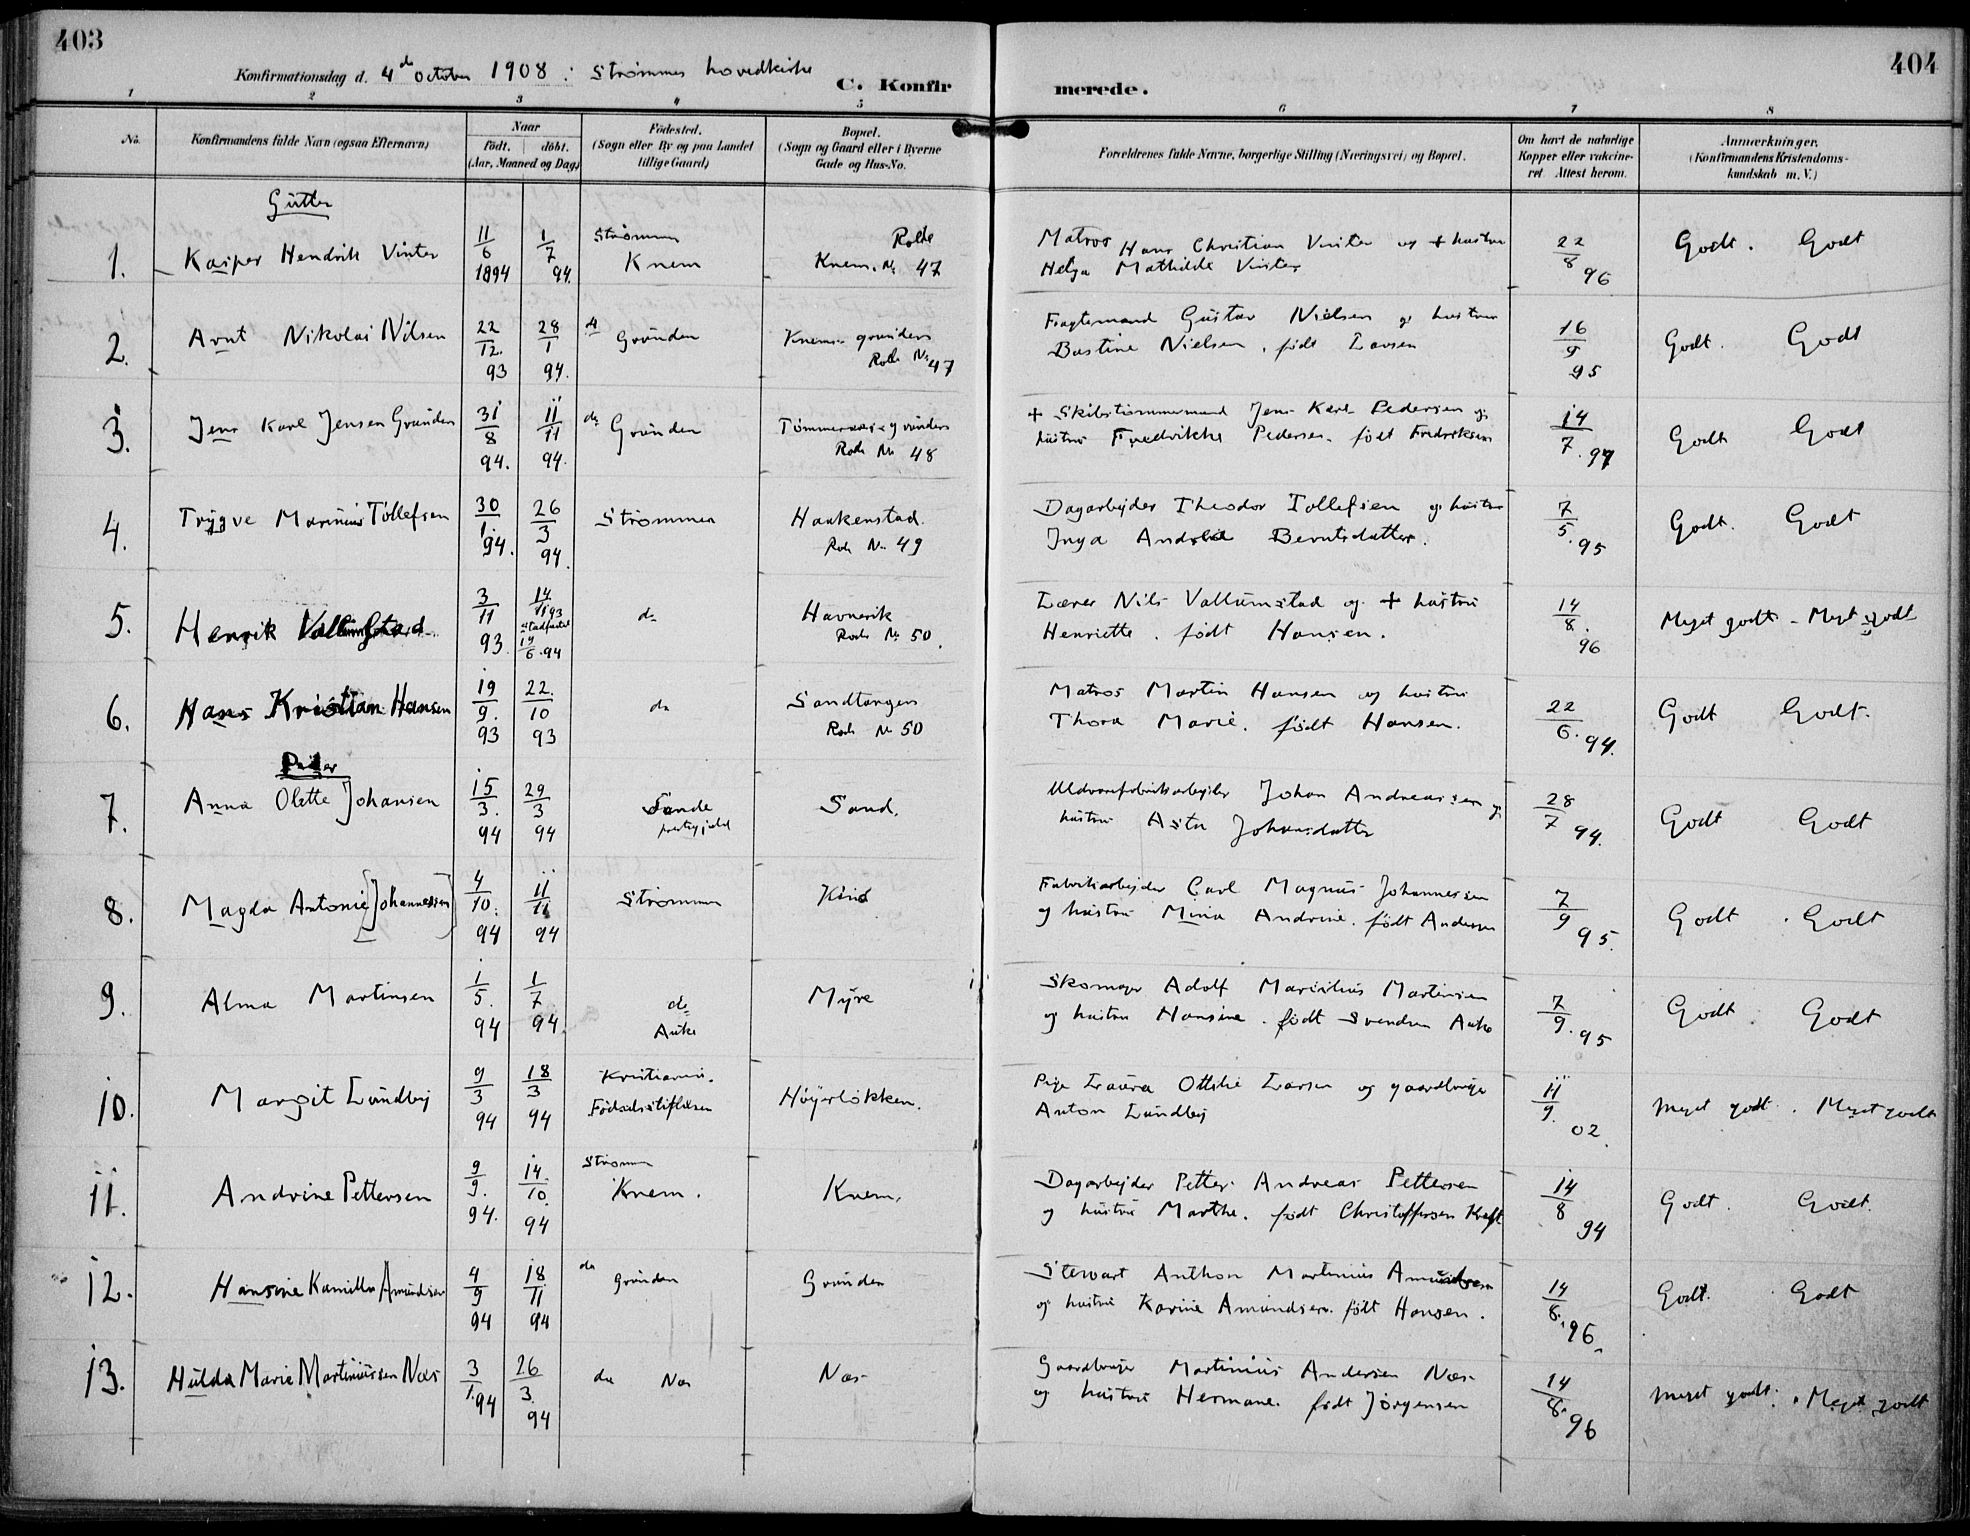 403
404
Konfirmationsdag d. 4de October 1908 i Strømmen hovedkirke
C. Konfirmerede.
1 2 3 4 5 6 7 8
No.
Konfirmandens fulde Navn (ogsaa Efternavn)
Naar
født. døbt.
(Aar, Maaned og Dag)
Fødested.
(Sogn eller By og paa Landet
tillige Gaard)
Bopæl.
(Sogn og Gaard eller i Byerne
Gade og Hus-No.
Forældrenes fulde Navne, borgerlige Stilling (Næringsvei) og Bopæl.
Om havt de naturlige
Kopper eller vakcine-
ret Attest herom.
Anmærkninger.
(Konfirmandens Kristendoms-
kundskab m. V.)
Gutter
1. Kasper Hendrik Vinter 11/6 1894 1/7 94. Strømmen Knem Knem. Rode No 47
Matros Hans Christian Vinter og + hustru
Helga Mathilde Vinter
22/8 96 Godt. Godt
2. Arnt Nikolai Nilsen 22/12. 93 28/1 94. Grunden Knems grunden Rode No 47
Fragtemand Gustav Nielsen og hustru
Bastine Nielsen, født Larsen
16/9 95 Godt. Godt
3. Jens Karl Jensen Grunden 31/8 94. 11/11 94. do Grunden Tømmeraas-grunden Rode No 48
+ Skibstømmermand Jens Karl Pedersen og
hustru Fredrikke Pedersen. født Fredriksen
14/7. 97 Godt Godt
4. Trygve Marinius Tollefsen 30/1. 94. 26/3 94. Strømmen Haakenstad. Rode No 49
Dagarbejder Theodor Tollefsen og hustru
Inga Andrea Berntsdatter.
7/5. 95 Godt. Godt
5. Henrik Vallumstad 3/11 93. 14/11 93 stadfæstet 19/6. 94 do Havnevik Rode No 50.
Lærer Nils Vallumstad og + hustru
Henriette. født Hansen.
14/8. 96 Meget godt - Meget godt
6. Hans Kristian Hansen 19/9. 93 22./10 93 do Sandtangen Rode No 50
Matros Martin Hansen og hustru
Thora Marie. født Hansen.
22/6. 94. Godt Godt.
Piker
7. Anna Olette Johansen 15/3. 94 29/3 94 Sande prestegjeld Sand.
Uldvarefabriksarbejder Johan Andreassen og
hustru Asta Johansdatter
28/7 94. Godt Godt
8. Magda Antonie [Johannessen] 4/10. 94 11/11 94 Strømmen
Fabriksarbejder Carl Magnus Johannessen
og hustru Mina Andrine. født Andersen
7/9 95. Godt. Godt
9. Alma Martinsen 1/5. 94 1/7 94. do Myre
og hustru Hansine. født Svendsen
Skomager Adolf Martinsen
7/9. 95 Godt. Godt
10. Margit Lundby 9/3 94 18/3 94 Kristiania. Fødselsstiftelsen Høyerløkken.
Pige Laura Ottilie Larsen og gaardbruger
Anton Lundby
11/9. 02. Meget godt. Meget godt
11. Andrine Pettersen 9/9. 94. 14./10 94 Strømmen Knem. Knem.
Dagarbejder Petter Andreas Pettersen
og hustru Marthe. født Christoffersen
14/8 94 Godt. Godt.
12. Hansine Kamilla Amundsen 4/9 94 18/11 94 do Grunden Grunden
Stewart Anthon Martinius Amundsen
og hustru Karine Amundsen. født Hansen.
14/8. 96. Godt. Godt
13. Hulda Marie Martiniussen Næs 3/1. 94 26/3. 94 do Næs Næs
Gaardbruger Martinius Andersen Næs
og hustru Hermane. født Jørgensen
14/8. 96 Meget godt. Meget godt